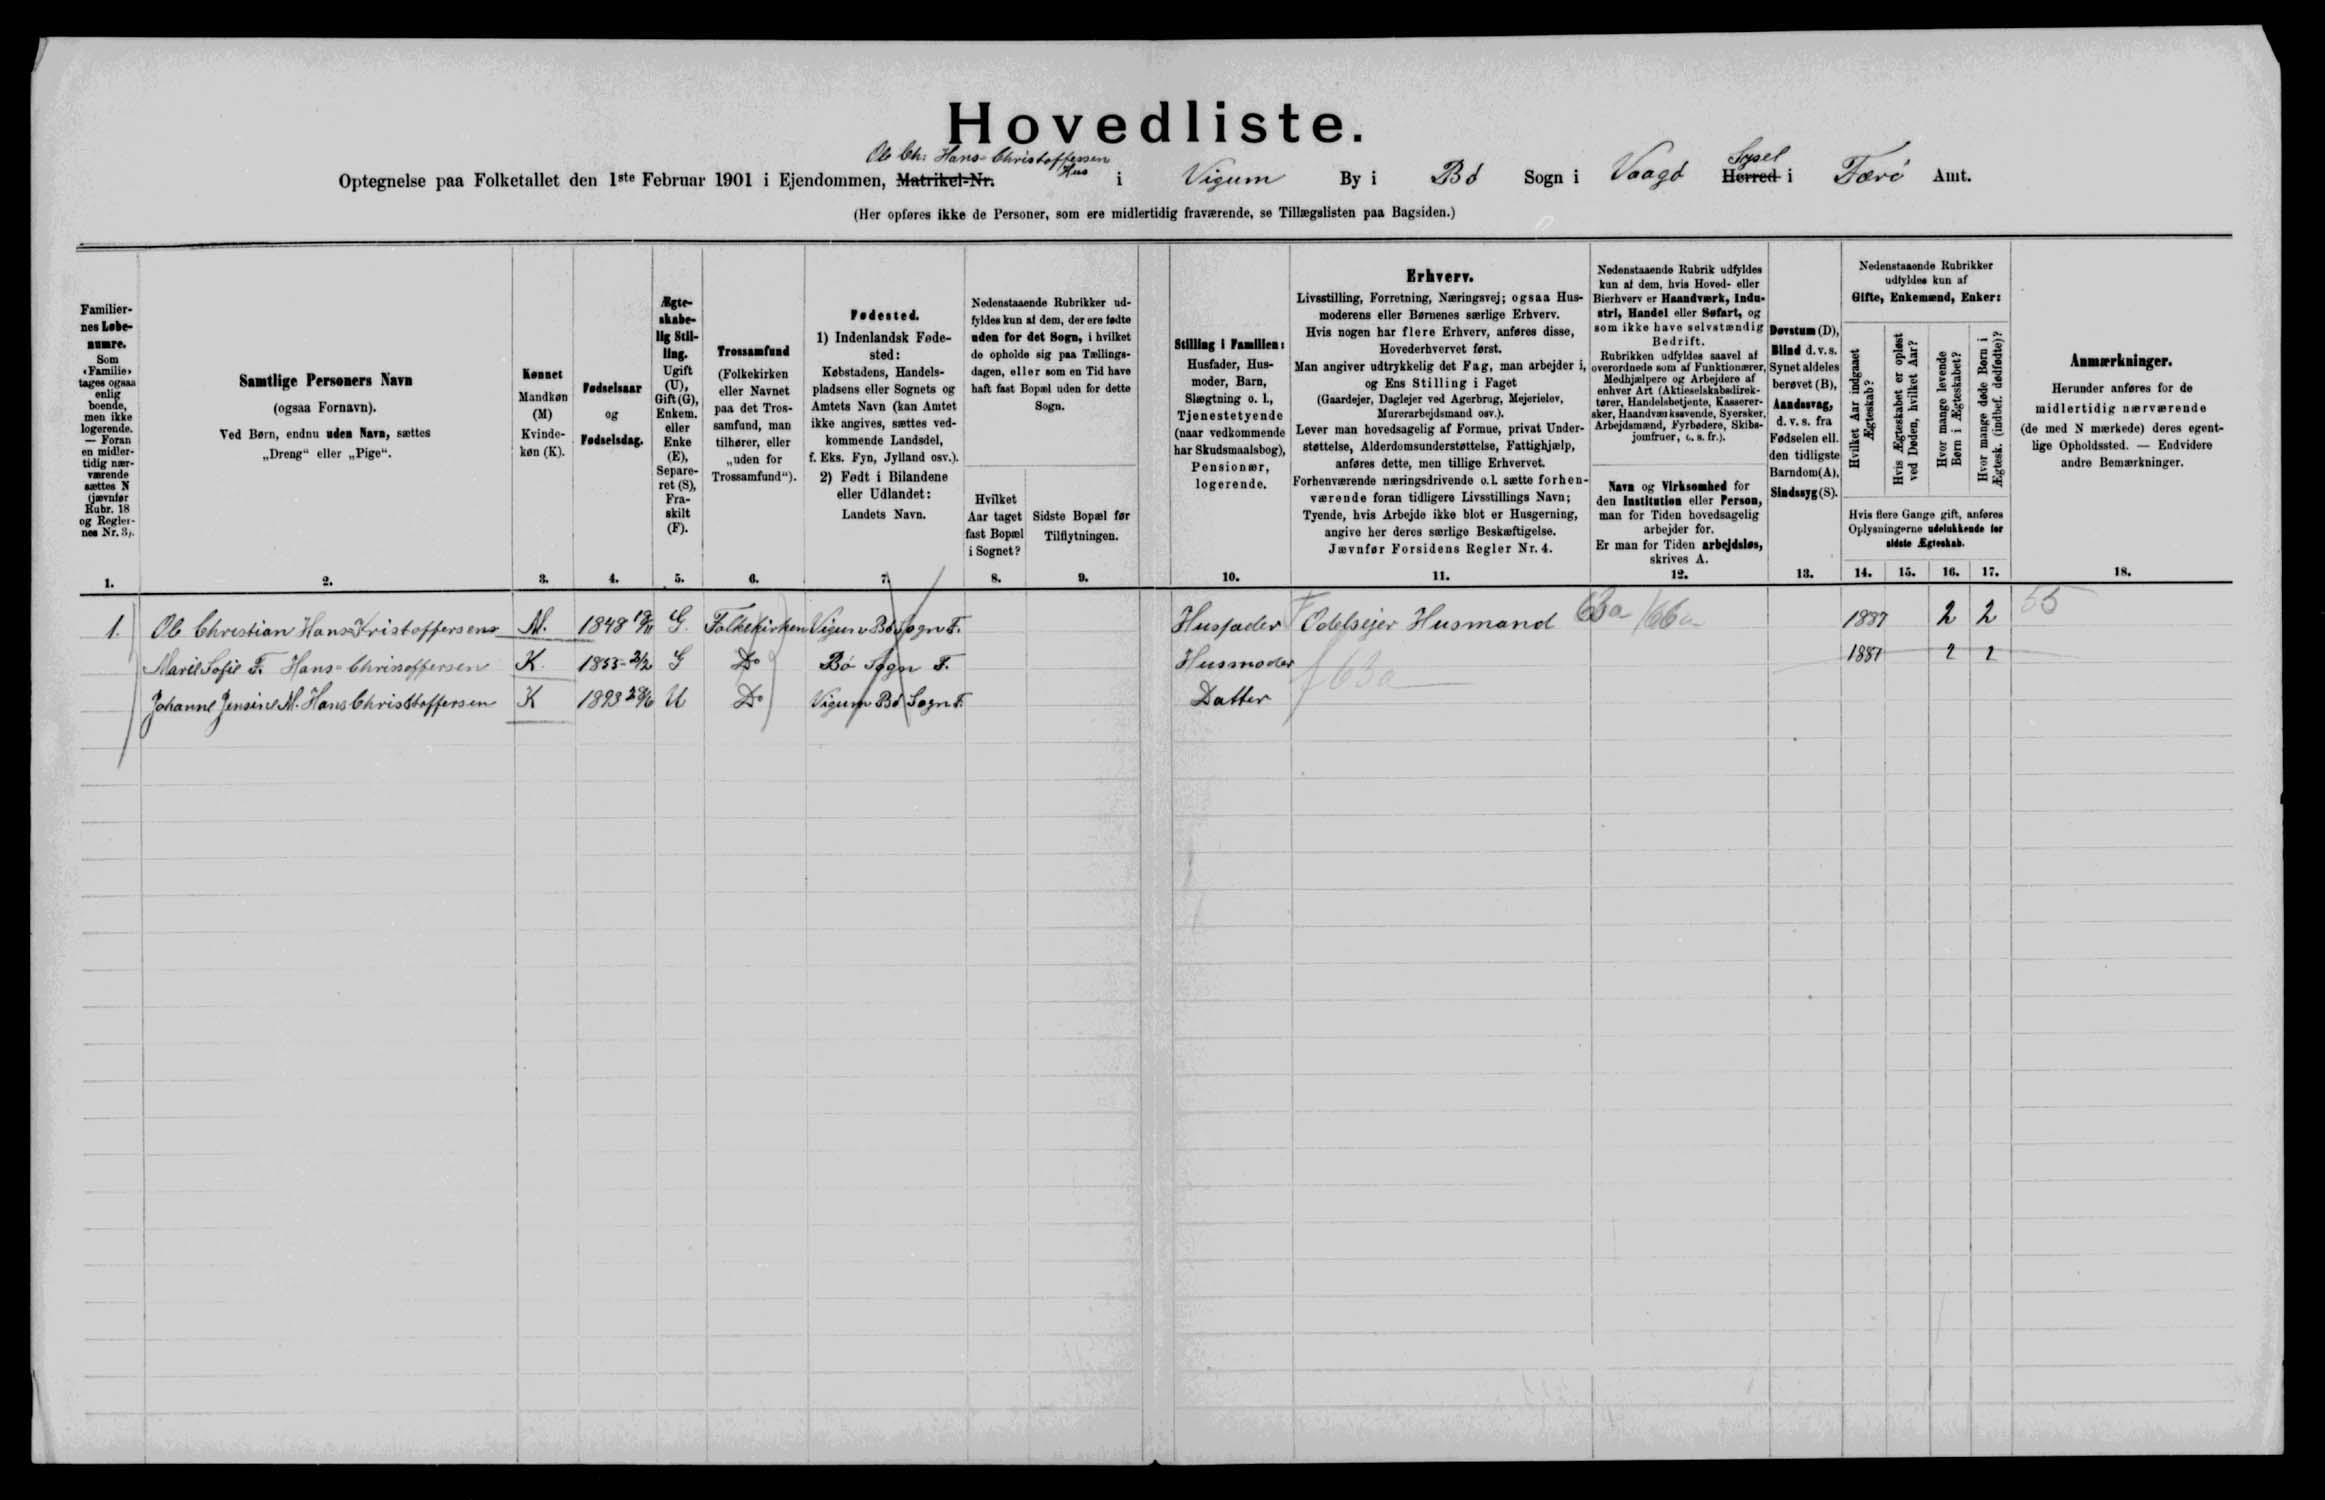 Hovedliste.
Ole Ch: Hans-Christoffersen
Hus
Optegnelse paa Folketallet den 1ste Februar 1901 i Ejendommen, Matrikel-Nr. i Vigum By i Bø Sogn i Vaagø Herred i Færø Amt.
Sysel
(Her opføres ikke de Personer, som ere midlertidig fraværende, se Tillægslisten paa Bagsiden.)
Familier-
nes Løbe-
numre.
Som
«Familie»
tages ogsaa
enlig
boende,
men ikke
logerende.
— Foran
en midler-
tidig nær-
værende
sættes N
(jævnfør
Rubr. 18
og Regler-
nes Nr. 3).
1.
Samtlige Personers Navn
(ogsaa Fornavn).
Ved Børn, endnu uden Navn, sættes
„Dreng“ eller „Pige“.
2.
Kønnet
Mandkøn
(M)
Kvinde-
køn (K).
3.
Fødselsaar
og
Fødselsdag.
4.
Ægte-
skabe-
lig Stil-
ling.
Ugift
(U),
Gift (G),
Enkem.
eller
Enke
(E),
Separe-
ret (S),
Fra-
skilt
(F).
5.
Trossamfund
(Folkekirken
eller Navnet
paa det Tros-
samfund, man
tilhører, eller
„uden for
Trossamfund“).
6.
Fødested.
1) Indenlandsk Føde-
sted:
Købstadens, Handels-
pladsens eller Sognets og
Amtets Navn (kan Amtet
ikke angives, sættes ved-
kommende Landsdel,
f. Eks. Fyn, Jylland osv.).
2) Født i Bilandene
eller Udlandet:
Landets Navn.
7.
Nedenstaaende Rubrikker ud-
fyldes kun af dem, der ere fødte
uden for det Sogn, i hvilket
de opholde sig paa Tællings-
dagen, eller som en Tid have
haft fast Bopæl uden for dette
Sogn.
Hvilket
Aar taget
fast Bopæl
i Sognet?
8.
Sidste Bopæl før
Tilflytningen.
9.
Stilling i Familien:
Husfader, Hus-
moder, Barn,
Slægtning o. l.,
Tjenestetyende
(naar vedkommende
har Skudsmaalsbog),
Pensionær,
logerende.
10.
Erhverv.
Livsstilling, Forretning, Næringsvej; ogsaa Hus-
moderens eller Børnenes særlige Erhverv.
Hvis nogen har flere Erhverv, anføres disse,
Hovederhvervet først.
Man angiver udtrykkelig det Fag, man arbejder i,
og Ens Stilling i Faget
(Gaardejer, Daglejer ved Agerbrug, Mejerielev,
Murerarbejdsmand osv.).
Lever man hovedsagelig af Formue, privat Under-
støttelse, Alderdomsunderstøttelse, Fattighjælp,
anføres dette, men tillige Erhvervet.
Forhenværende næringsdrivende o. l. sætte forhen-
værende foran tidligere Livsstillings Navn;
Tyende, hvis Arbejde ikke blot er Husgerning,
angive her deres særlige Beskæftigelse.
Jævnfør Forsidens Regler Nr. 4.
11.
Nedenstaaende Rubrik udfyldes
kun af dem, hvis Hoved- eller
Bierhverv er Haandværk, Indu-
stri, Handel eller Søfart, og
som ikke have selvstændig
Bedrift.
Rubrikken udfyldes saavel af
overordnede som af Funktionærer,
Medhjælpere og Arbejdere af
enhver Art (Aktieselskabsdirek-
tører, Handelsbetjente, Kasserer-
sker, Haandværkssvende, Syersker,
Arbejdsmænd, Fyrbødere, Skibs-
jomfruer, o. s. fr.).
Navn og Virksomhed for
den Institution eller Person,
man for Tiden hovedsagelig
arbejder for.
Er man for Tiden arbejdsløs,
skrives A.
12.
Døvstum (D),
Blind d. v. s.
Synet aldeles
berøvet (B),
Aandssvag,
d. v. s. fra
Fødselen ell.
den tidligste
Barndom (A),
Sindssyg (S).
13.
Nedenstaaende Rubrikker
udfyldes kun af
Gifte, Enkemænd, Enker:
Hvilket Aar indgaaet
Ægteskab?
Hvis Ægteskabet er opløst
ved Døden, hvilket Aar?
Hvor mange levende
Børn i Ægteskabet?
Hvor mange døde Børn i
Ægtesk. (indbef. dødfødte)?
Hvis flere Gange gift, anføres
Oplysningerne udelukkende for
sidste Ægteskab.
14. 15. 16. 17.
Anmærkninger.
Herunder anføres for de
midlertidig nærværende
(de med N mærkede) deres egent-
lige Opholdssted. — Endvidere
andre Bemærkninger.
18.
1. Ole Christian Hans-Kristoffersens M. 1848 G. Folkekirken Vigum Bø Sogn F. Husfader Odelsejer Husmand 63a 66a 1887 2 2 55
Marie Sofie F. Hans-Chrisoffersen K. 1853 2/2 G Do Bø Sogn F. Husmoder 63a 1887 2 2
Johanne Jensine M. Hans Christoffersen K 1893 28/6 U Do Vigum Bø Sogn F. Datter